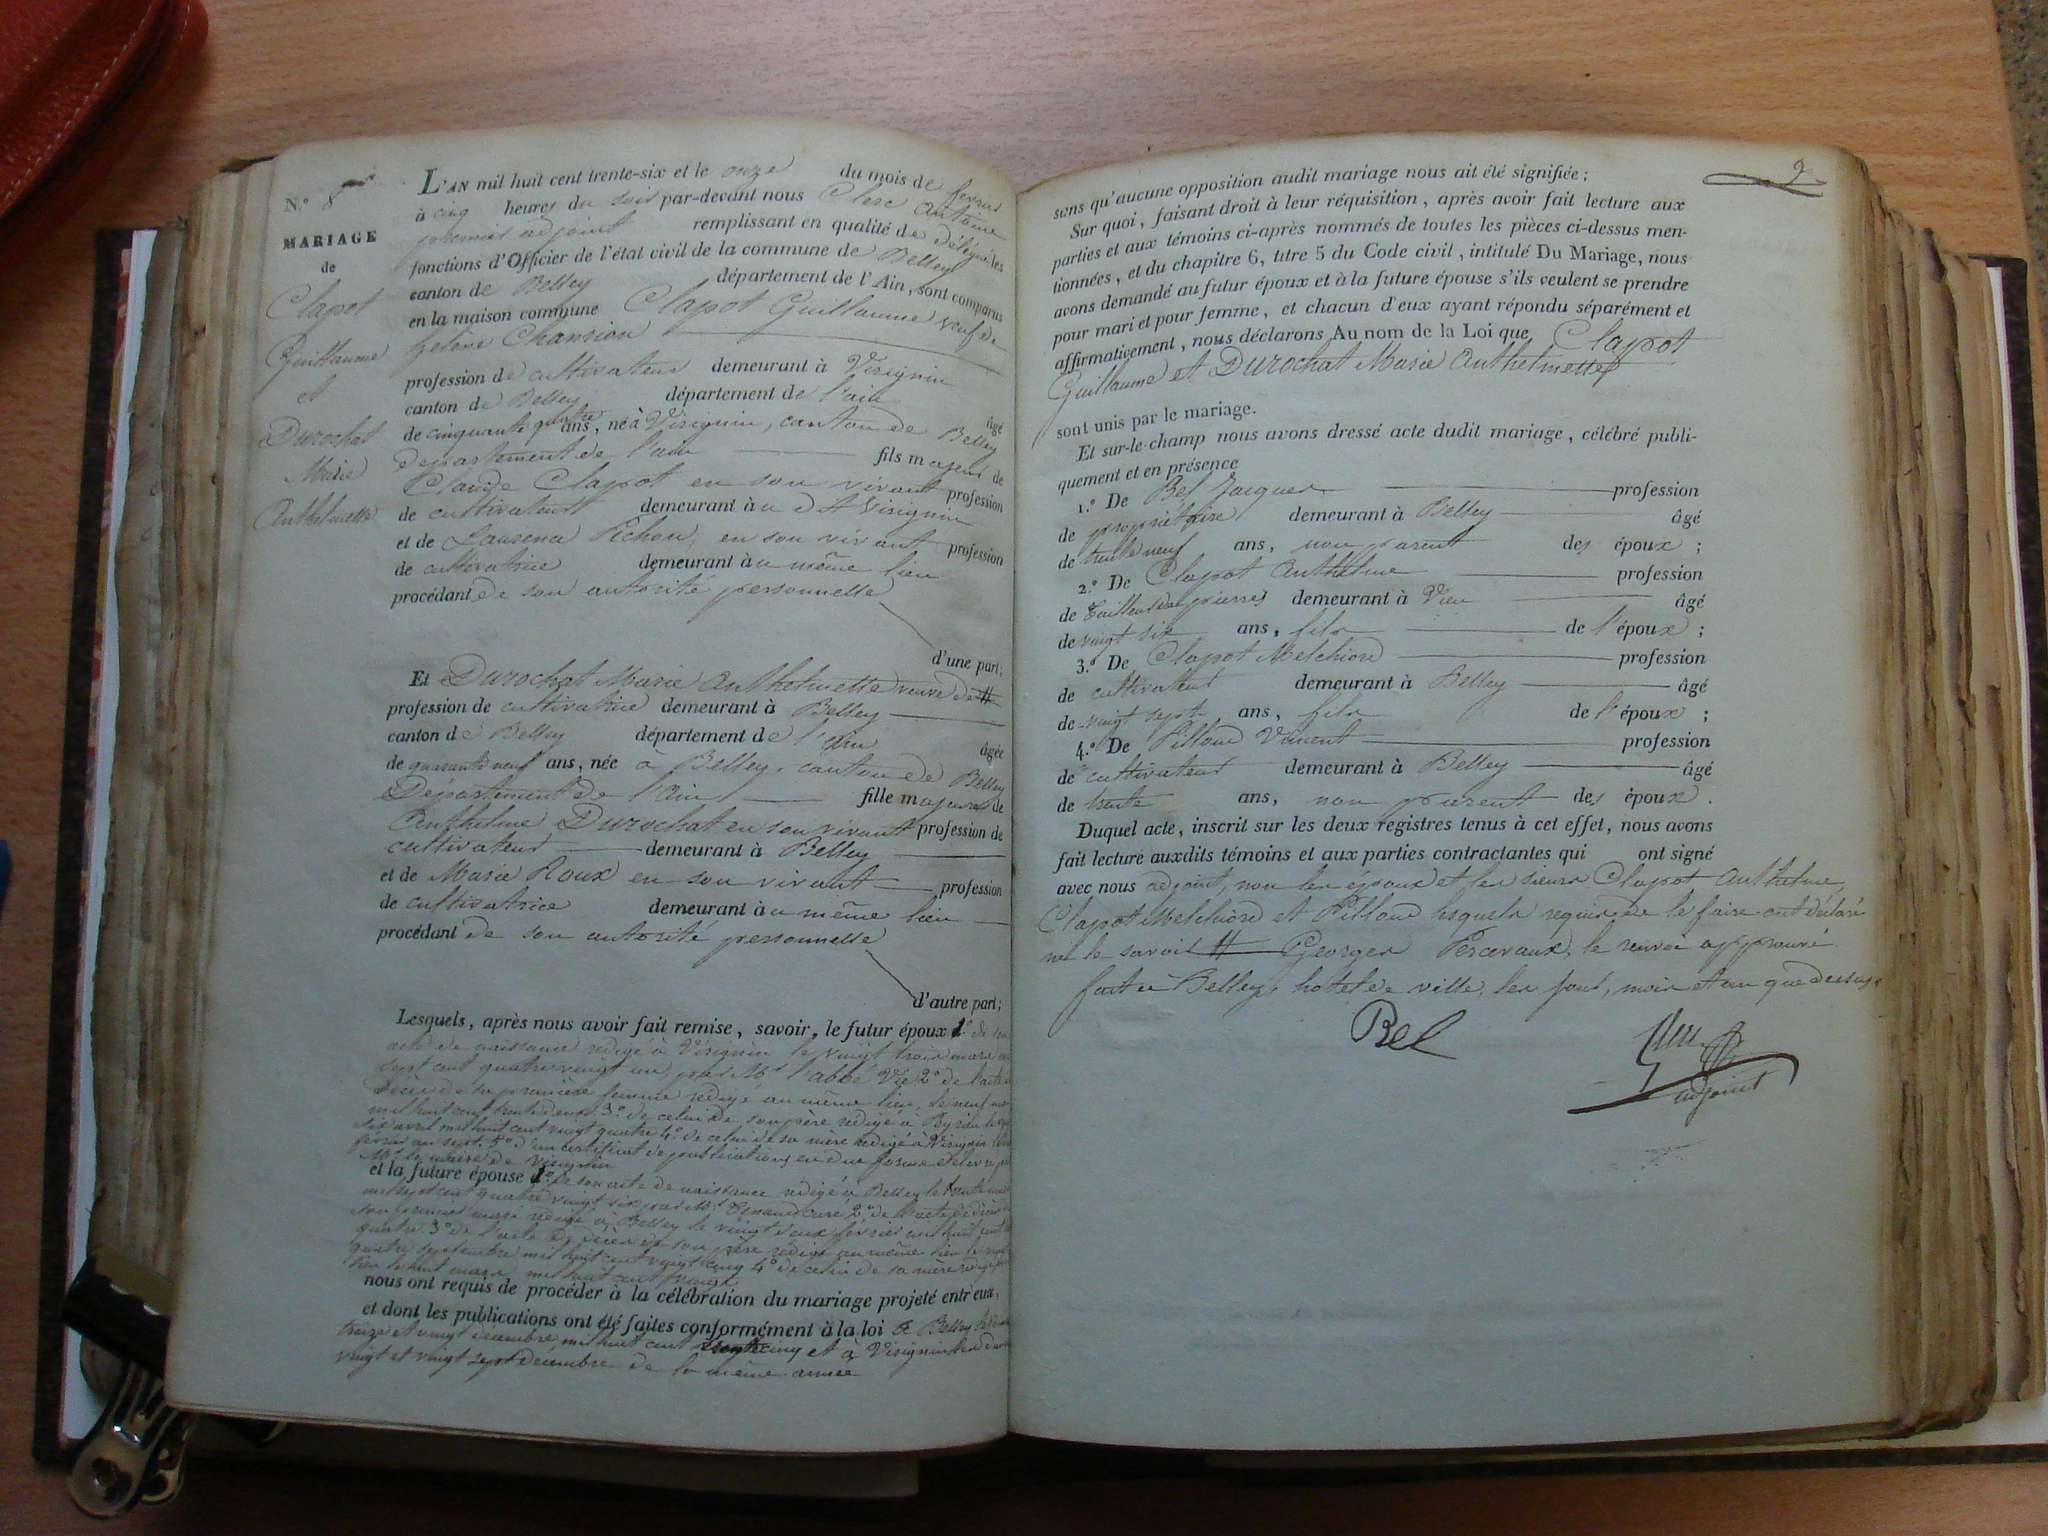 N.° 8
MARIAGE
de
Clapot
Guillaume
et
Durochat
Marie
Anthelmette
L'AN mil huit cent trente-six et le onze du mois de février
à cinq heures du soir par-devant nous Clerc Antoine
premier adjoint remplissant en qualité de délégué les
fonctions d'Officier de l'état civil de la commune de Belley
canton de Belley département de l'Ain, sont comparus
en la maison commune Clapot Guillaume veuf de
helène Chanrion
profession de cultivateur demeurant à Virignin
canton de Belley département de l'ain
âgé
de cinquante quatre ans, né à Virignin, canton de Belley
département de l'ain fils majeur de
Claude Clapot en son vivant profession
de cultivateur demeurant au dit Virignin
et de Laurence Pichon, en son vivant profession
de cultivatrice demeurant au même lieu
procédant de son autorité personnelle
d'une part;
Et Durochat Marie Anthelmette veuve de #
profession de cultivatrice demeurant à Belley
canton de Belley département de l'ain
âgée
de quarante neuf ans, née à Belley, canton de Belley
Département de l'Ain fille majeure de
Anthelme Durochat en son vivant profession de
cultivateur demeurant à Belley
et de Marie Roux en son vivant profession
de cultivatrice demeurant au même lieu
procédant de son autorité personnelle
d'autre part;
Lesquels, après nous avoir fait remise, savoir, le futur époux 1° de son
acte de naissance rédigé à Virignin le vingt trois mars mil
sept cent quatre vingt un, par Mr l'abbé Vie 2° de l'acte de
décès de sa première femme rédigé au même lieu, le neuf
mil huit cent trente deux 3° de celui de son père rédigé à
six avril mil huit cent vingt quatre 4° de celui de sa mère rédigé à Virignin
février an sept. 5° d'un certificat de publications en due forme
Mr le maire de Virignin
et la future épouse 1° de son acte de naissance rédigé à Belley le trente
mil sept cent quatre vingt six par Mr curé 2° de l'acte de décès de
son premier mari rédigé à Belley le vingt deux février mil huit cent
quatre 3° de l'acte de décès de son père rédigé au même lieu le vingt
quatre septembre mil huit cent vingt cinq 4° de celui de sa mère rédigé
lieu le huit mars mil huit cent
nous ont requis de procéder à la célébration du mariage projeté entr'eux,
et dont les publications ont été faites conformément à la loi à Belley les
treize et vingt décembre, mil huit cent trente cinq et à Virignin les
vingt et vingt sept décembre de la même année
9
sans qu'aucune opposition audit mariage nous ait été signifiée;
Sur quoi, faisant droit à leur réquisition, après avoir fait lecture aux
parties et aux témoins ci-après nommés de toutes les pièces ci-dessus men-
tionnées, et du chapitre 6, titre 5 du Code civil, intitulé Du Mariage, nous
avons demandé au futur époux et à la future épouse s'ils veulent se prendre
pour mari et pour femme, et chacun d'eux ayant répondu séparément et
affirmativement, nous déclarons Au nom de la Loi que Clapot
Guillaume et Durochat Marie Anthelmette
sont unis par le mariage.
Et sur-le-champ nous avons dressé acte dudit mariage, célébré publi-
quement et en présence
1.° De Bel Jacques profession
de propriétaire demeurant à Belley âgé
de trente neuf ans, non parent des époux;
2.° De Clapot Anthelme profession
de tailleur de pierres demeurant à Vieu âgé
de vingt six ans, fils de l'époux;
3.° De Clapot Melchiord profession
de cultivateur demeurant à Belley âgé
de vingt sept ans, fils de l'époux;
4.° De Pilloud Vincent profession
de cultivateur demeurant à Belley âgé
de trente ans, non parent des époux.
Duquel acte, inscrit sur les deux registres tenus à cet effet, nous avons
fait lecture auxdits témoins et aux parties contractantes qui ont signé
avec nous adjoint, non les époux et les sieurs Clapot Anthelme,
Clapot Melchiord et Pilloud lesquels requis de le faire ont déclaré
ne le savoir # Georges Percevaux, le renvoi approuvé.
fait à Belley, hôtel de ville, les jour, mois et an que dessus.
Bel
Clerc
adjoint